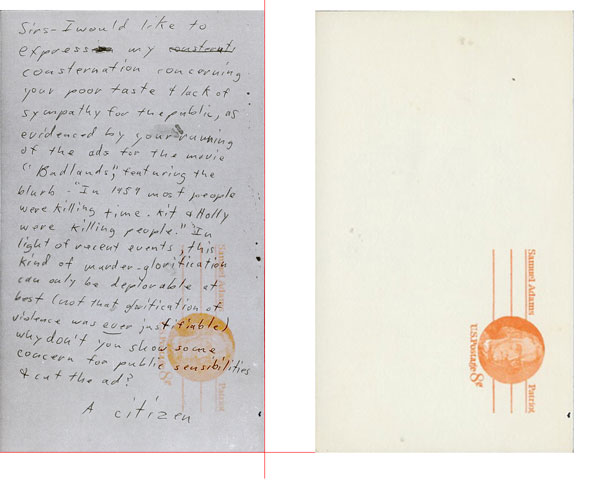 Sirs- I would like to
express my consternati
consternation concerning
your poor taste + lack of
sympathy for the public, as
evidenced by your running
of the ads for the movie
"Badlands," featuring the
blurb - "In 1959 most people
were killing time. Kit + Holly
were killing people." In
light of recent events, this
kind of murder-glorification
can only be deplorable at
best (not that glorification of
violence was ever justifiable)
why don't you show some
concern for public sensibilities
+ cut the ad?
A citizen
Samuel Adams
Patriot
US Postage 8¢
Samuel Adams
Patriot
US Postage 8¢